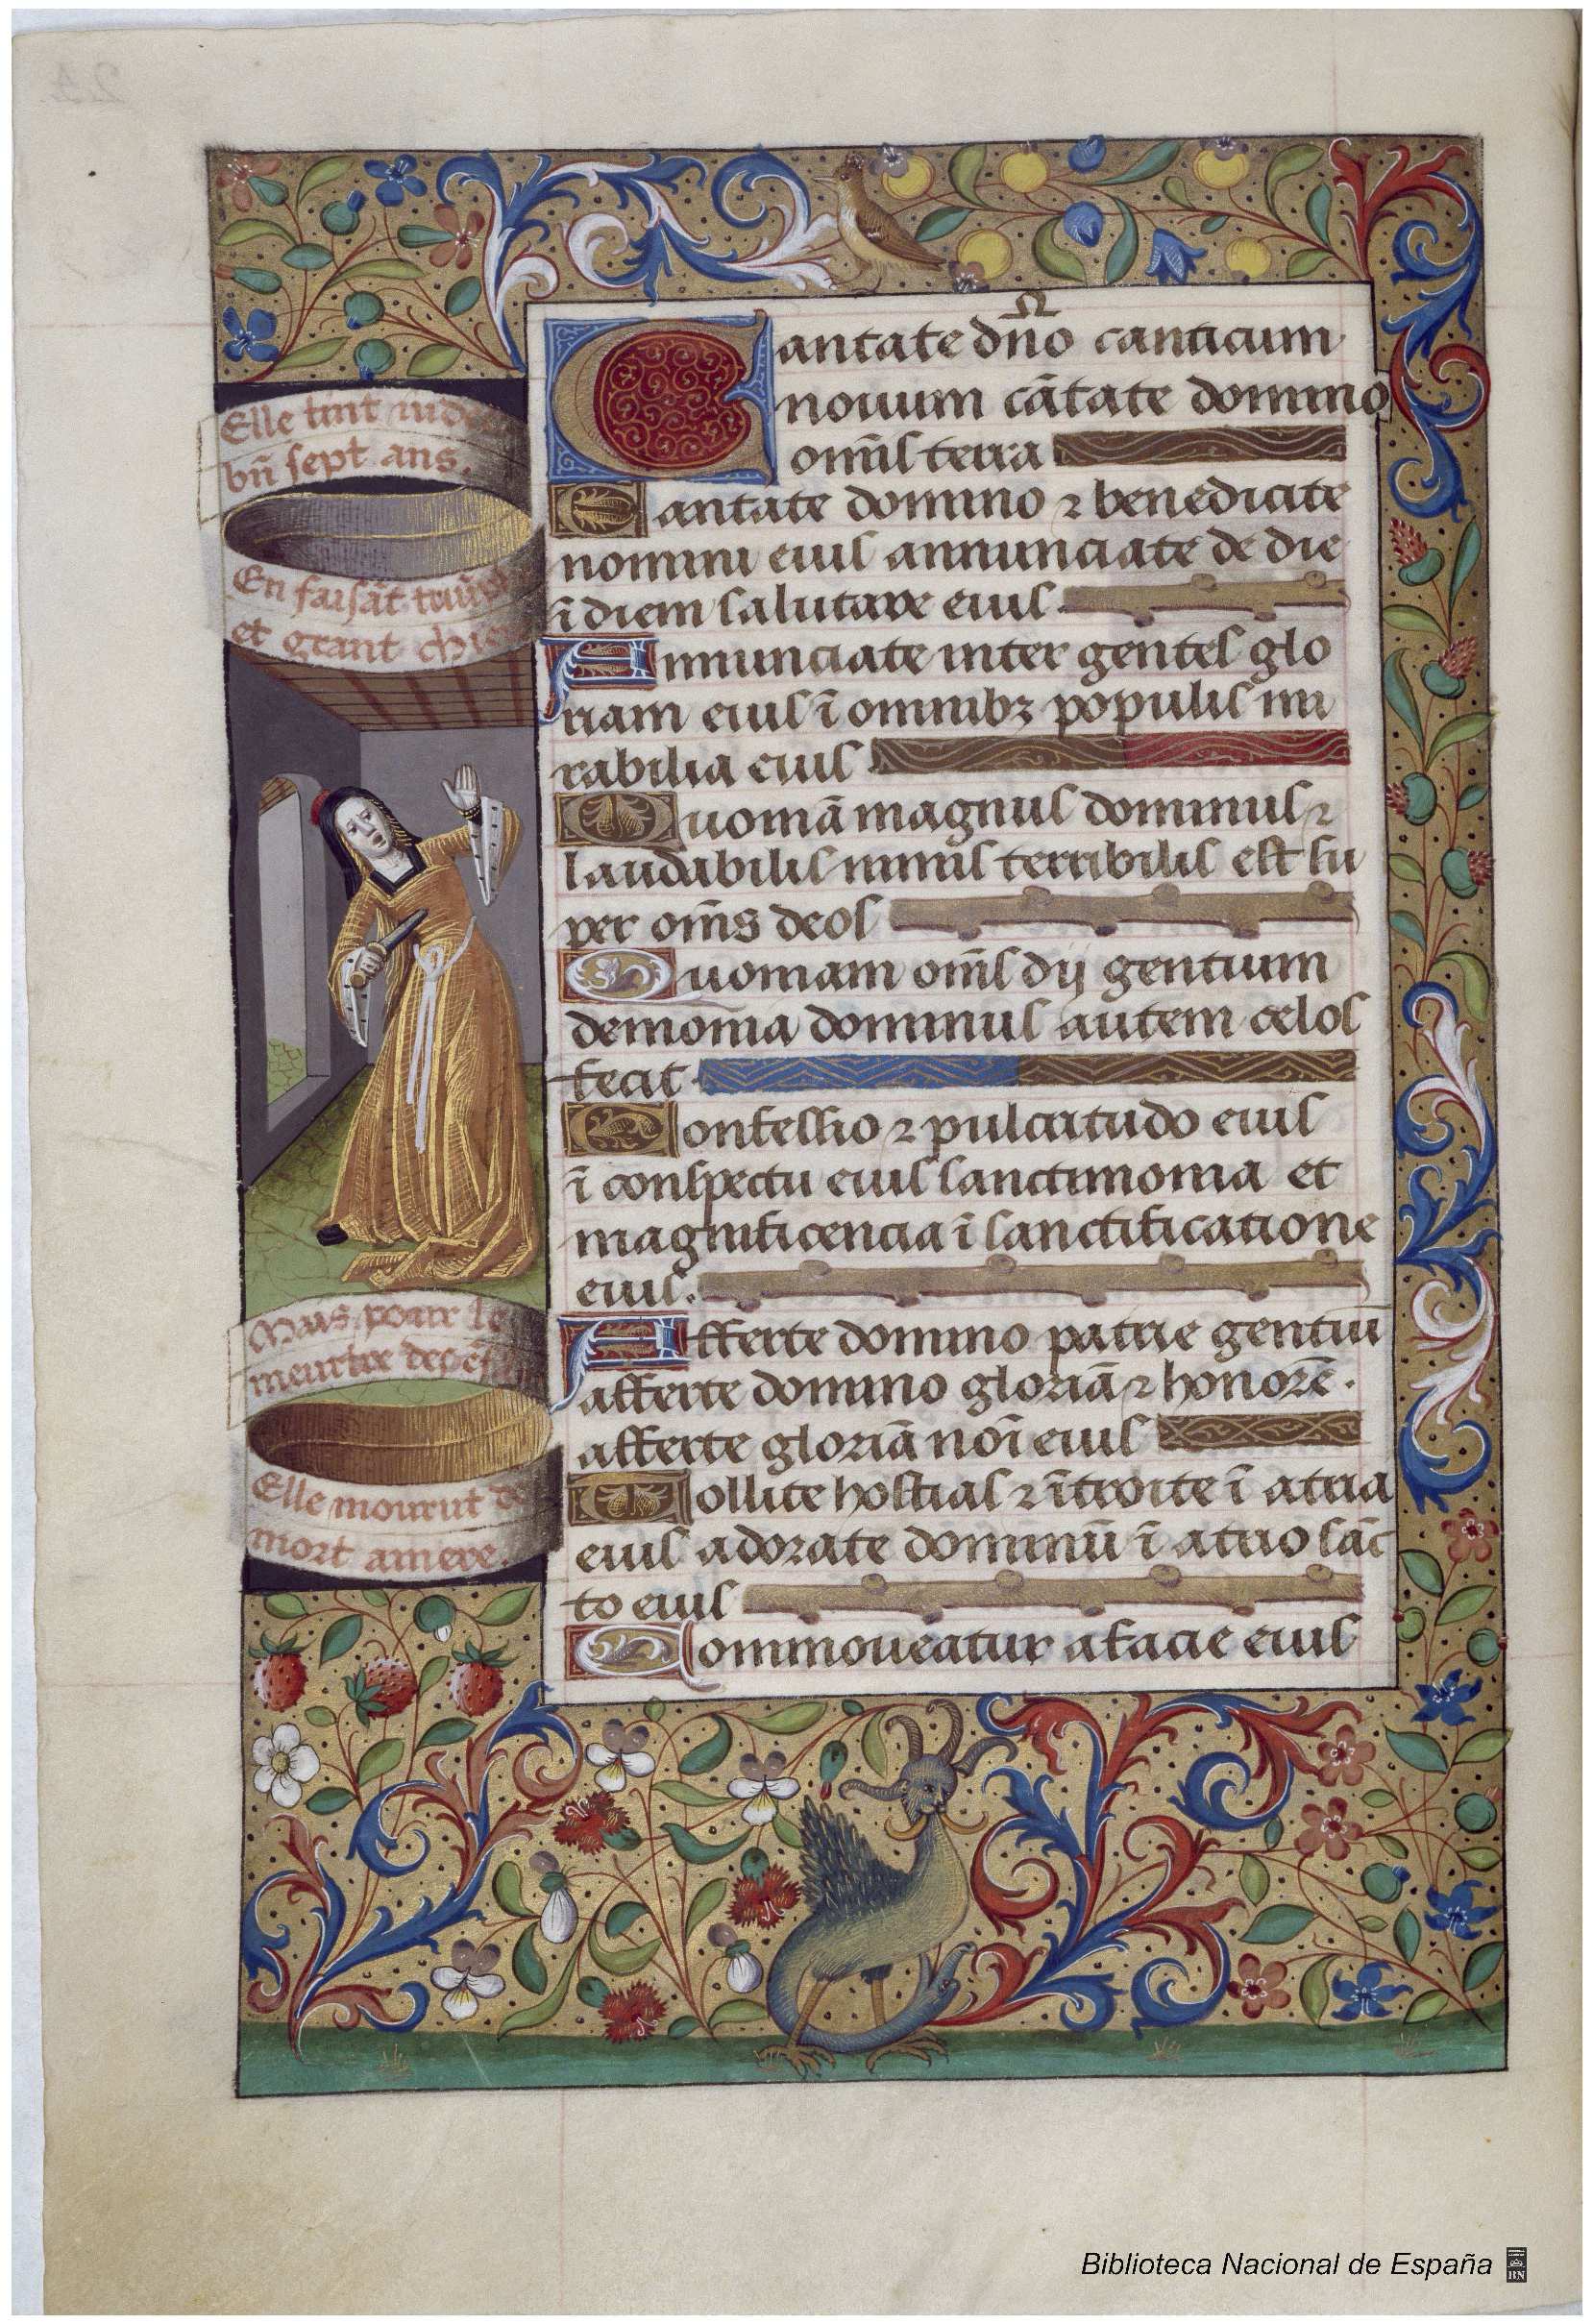 Cantate dn̄o canticum
nouum cātate domino
om̄is terra
Cantate domino ⁊ benedicite
nomini eius annunciate de die
ī diem salutare eius.
Annunciate inter gentes glo
riam eius ī omnibꝫ populis mi
rabilia eius
Quoniā magnus dominus ⁊
laudabilis nimis terribilis est su
per om̄s deos
Quoniam om̄s dij gentium
demonia dominus autem celos
fecit.
Confessio ⁊ pulcritudo eius
ī conspectu eius sanctimonia et
magnificencia ī sanctificatione
eius.
Afferte domino patrie gentiū
afferte domino gloriā ⁊ honorē.
afferte gloriā nōi eius
Tollite hostias ⁊ ītroite ī atria
eius adorate dominū ī atrio sāc
to eius
Commoueatur a facie eius
Elle tint
bn̄ sept ans.
En faisāt
et grant
Mais pour le
meurtre des
Elle mourut de
mort amere.
Biblioteca Nacional de España
BN